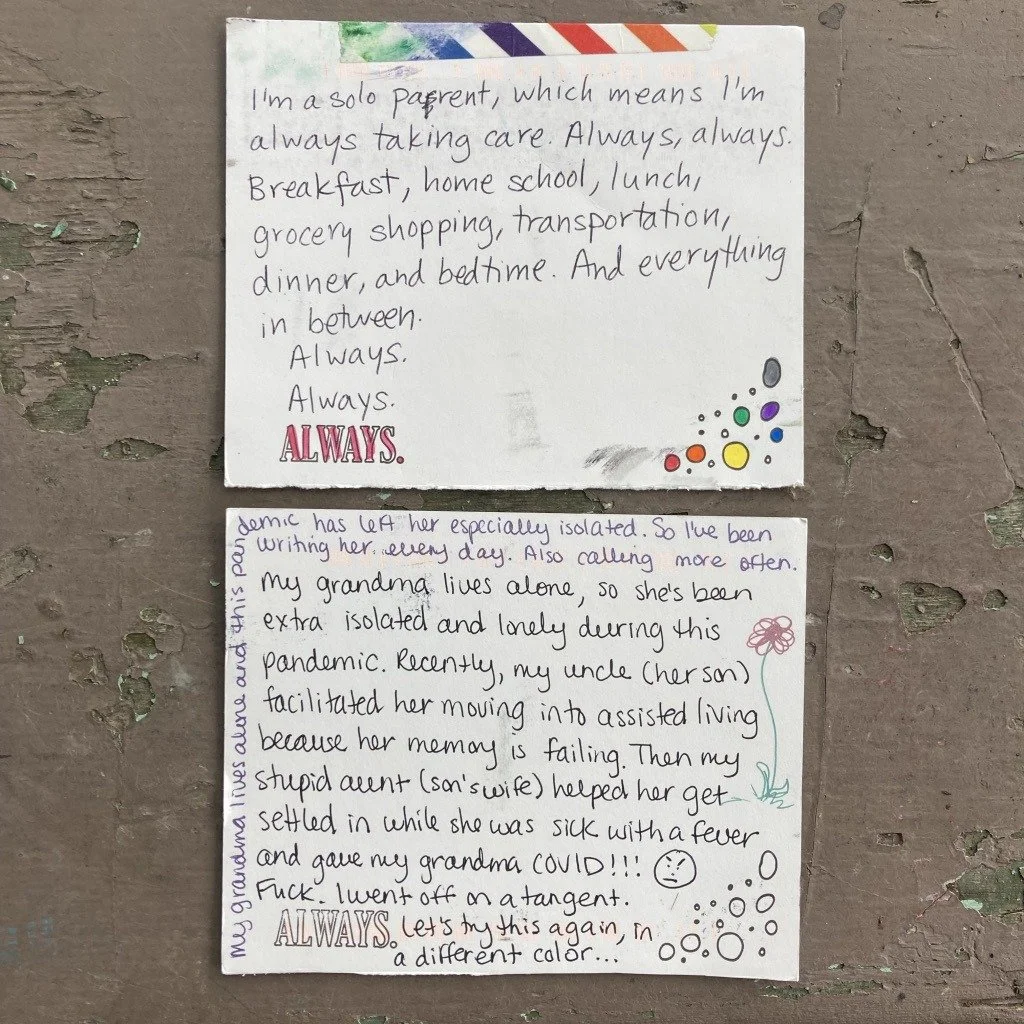 I'm a solo parent, which means I'm
always taking care. Always, always.
Breakfast, home school, lunch,
grocery shopping, transportation,
dinner, and bedtime. And everything
in between.
Always.
Always.
ALWAYS.
My grandma lives alone, so she's been
extra isolated and lonely during this
pandemic. Recently, my uncle (her son)
facilitated her moving into assisted living
because her memory is failing. Then my
stupid aunt (son's wife) helped her get
settled in while she was sick with a fever
and gave my grandma COVID!!!
Fuck. I went off on a tangent.
ALWAYS. Let's try this again, in
a different color...
My grandma lives alone and this pandemic has left her especially isolated. So I've been
writing her every day. Also calling more often.